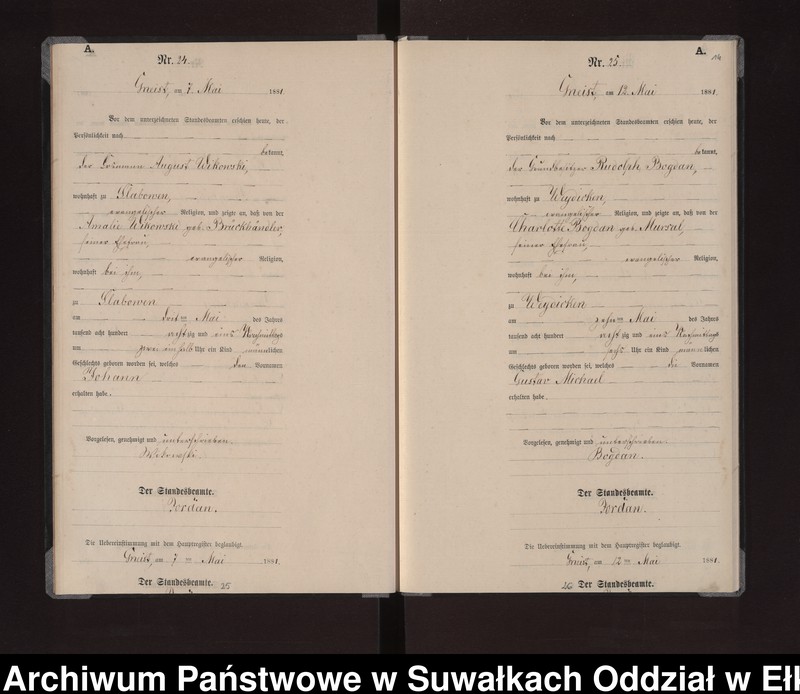 A.
Nr. 24.
Gneist, am 7. Mai 1881.
Vor dem unterzeichneten Standesbeamten erschien heute, der
Persönlichkeit nach
bekannt,
der Losmann August Wikowski,
wohnhaft zu Glabowen,
evangelischer Religion, und zeigte an, daß von der
Amalie Wikowski geb. Brückhändler,
seiner Ehefrau,
evangelischer Religion,
wohnhaft bei ihm,
zu Glabowen
am ten Mai des Jahres
tausend acht hundert achtzig und eins Nachmittags
um zwei einhalb Uhr ein Kind männlichen
Geschlechts geboren worden sei, welches den Vornamen
Johann
erhalten habe.
Vorgelesen, genehmigt und unterschrieben.
Der Standesbeamte.
Jordan.
Die Uebereinstimmung mit dem Hauptregister beglaubigt.
Gneist, am 7 ten Mai 1881.
Der Standesbeamte.
25
A.
14
Nr. 25
Gneist, am 12. Mai 1881.
Vor dem unterzeichneten Standesbeamten erschien heute, der
Persönlichkeit nach
bekannt,
der Grundbesitzer Rudolph Bogdan,
wohnhaft zu Weydicken,
evangelischer Religion, und zeigte an, daß von der
Charlotte Bogdan geb. Mursal,
seiner Ehefrau,
evangelischer Religion,
wohnhaft bei ihm,
zu Weydicken
am zehnten Mai des Jahres
tausend acht hundert achtzig und eins Nachmittags
um sechs Uhr ein Kind männlichen
Geschlechts geboren worden sei, welches die Vornamen
Gustav Michael
erhalten habe.
Vorgelesen, genehmigt und unterschrieben.
Bogdan.
Der Standesbeamte.
Jordan.
Die Uebereinstimmung mit dem Hauptregister beglaubigt.
Gneist, am 12 ten Mai 1881.
Der Standesbeamte.
Archiwum Państwowe w Suwałkach Oddział w Ełk